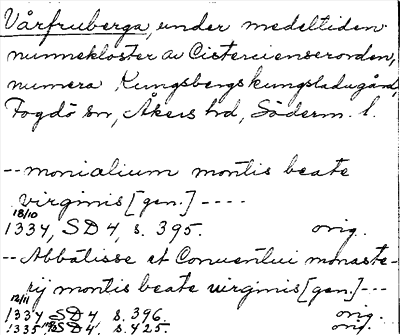 Vårfruberga, under medeltiden
nunnekloster av Cistercienserorden,
numera Kungsbergs kungsladugård,
Fogdö sn, Åkers hd, Söderm. l.
-- monialium montis beate
virginis [gen.] ----
18/10
1334, SD 4, s. 395. orig.
-- Abbatisse et Conventui monaste-
rij montis beate virginis [gen.] ---
12/11
1334 SD 4, s. 396. orig.
1335 SD 4, s. 425. orig.